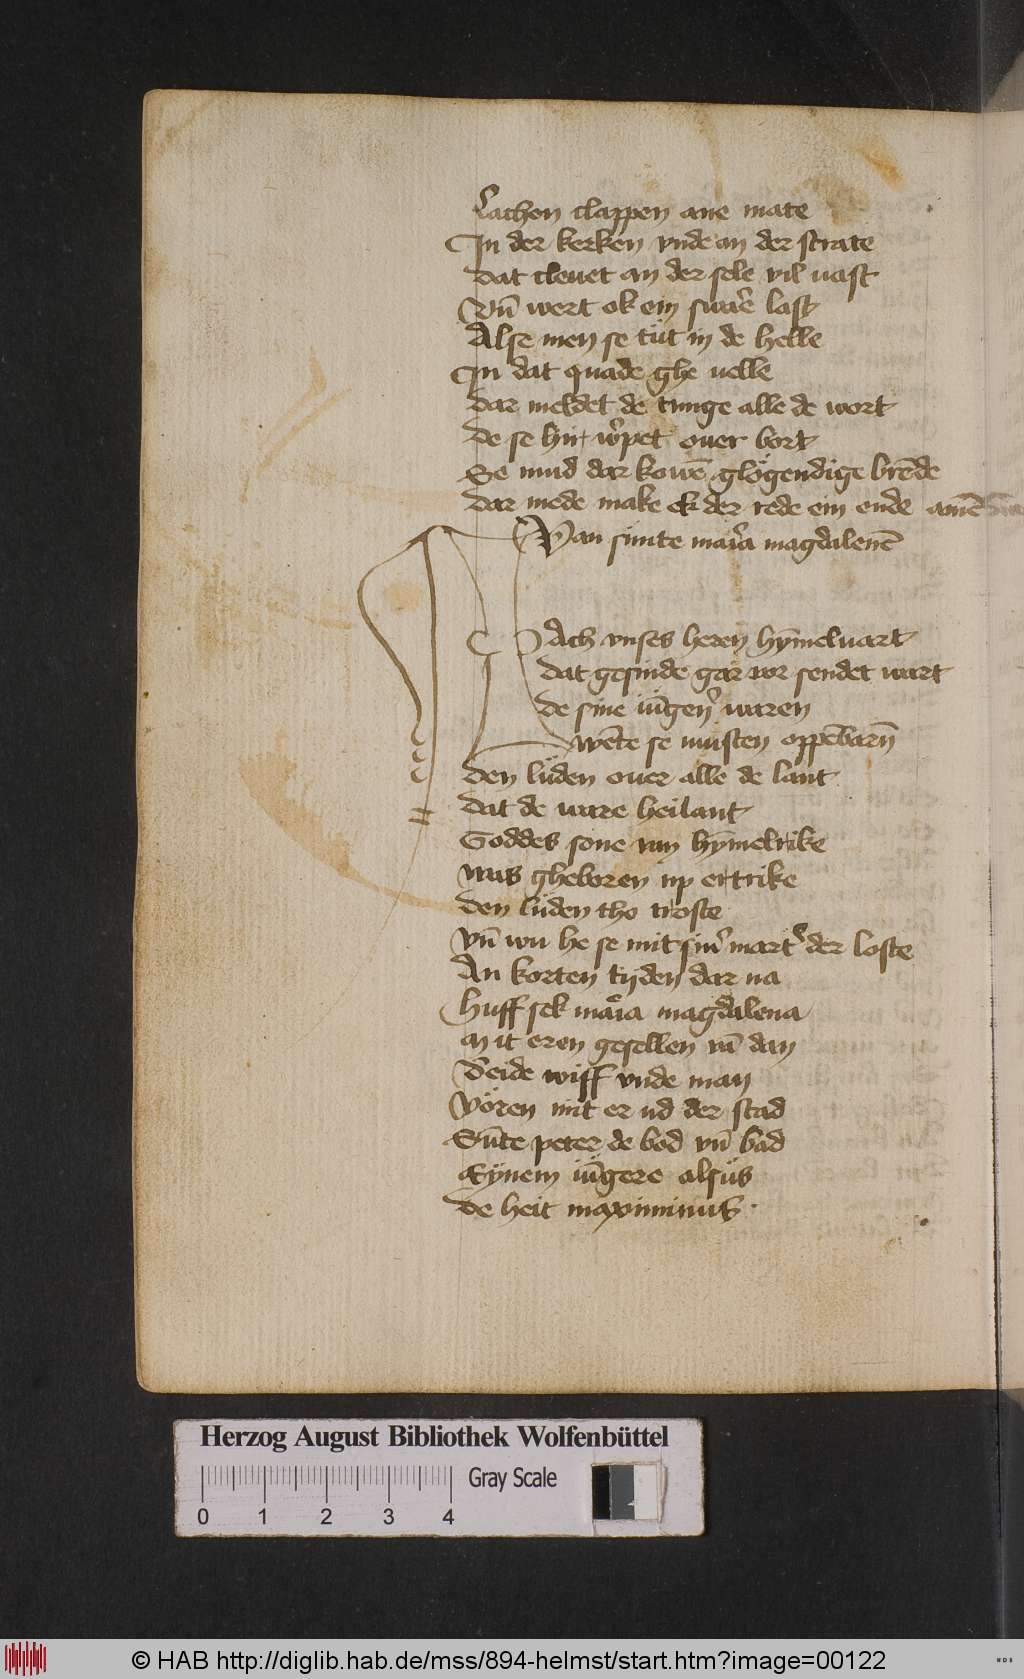 Lachen clappen ane mate
In der kerken vnde an der strate
dat cleuet an der sele vil uast
Vn̄ wert ok ein swar̉e last
Alse men se tůt in de helle
In dat quade ghe uelle
dar meldet de tunge alle de wort
de se hir w̉pet ouer bort
Se mud dar kowē glögendige brēde
dar mede make ek der rede ein ende amē
Van sunte mar̉a magdalenē
Nach vnses heren hȳmeluart
dat gesinde gar vor sendet wart
de sine iūgen̉ waren
wēte se musten oppēbarn̄
den lüden ouer alle de lant
dat de ware heilant
Goddes sone van hȳmelrike
was gheboren up ertrike
den lüden tho troste
vn̄ wu he se mit sin̉ mart̉ der loste
An korten tyden dar na
huff sek mar̉a magdalena
mit eren gesellen vā dan
Beide wiff vnde man
Vören mit er ud der stad
Sūte peter de bod vn̄ bad
Eynem iūgere alsüs
de heit maximinus
Herzog August Bibliothek Wolfenbüttel
0 1 2 3 4 Gray Scale
© HAB http://diglib.hab.de/mss/894-helmst/start.htm?image=00122